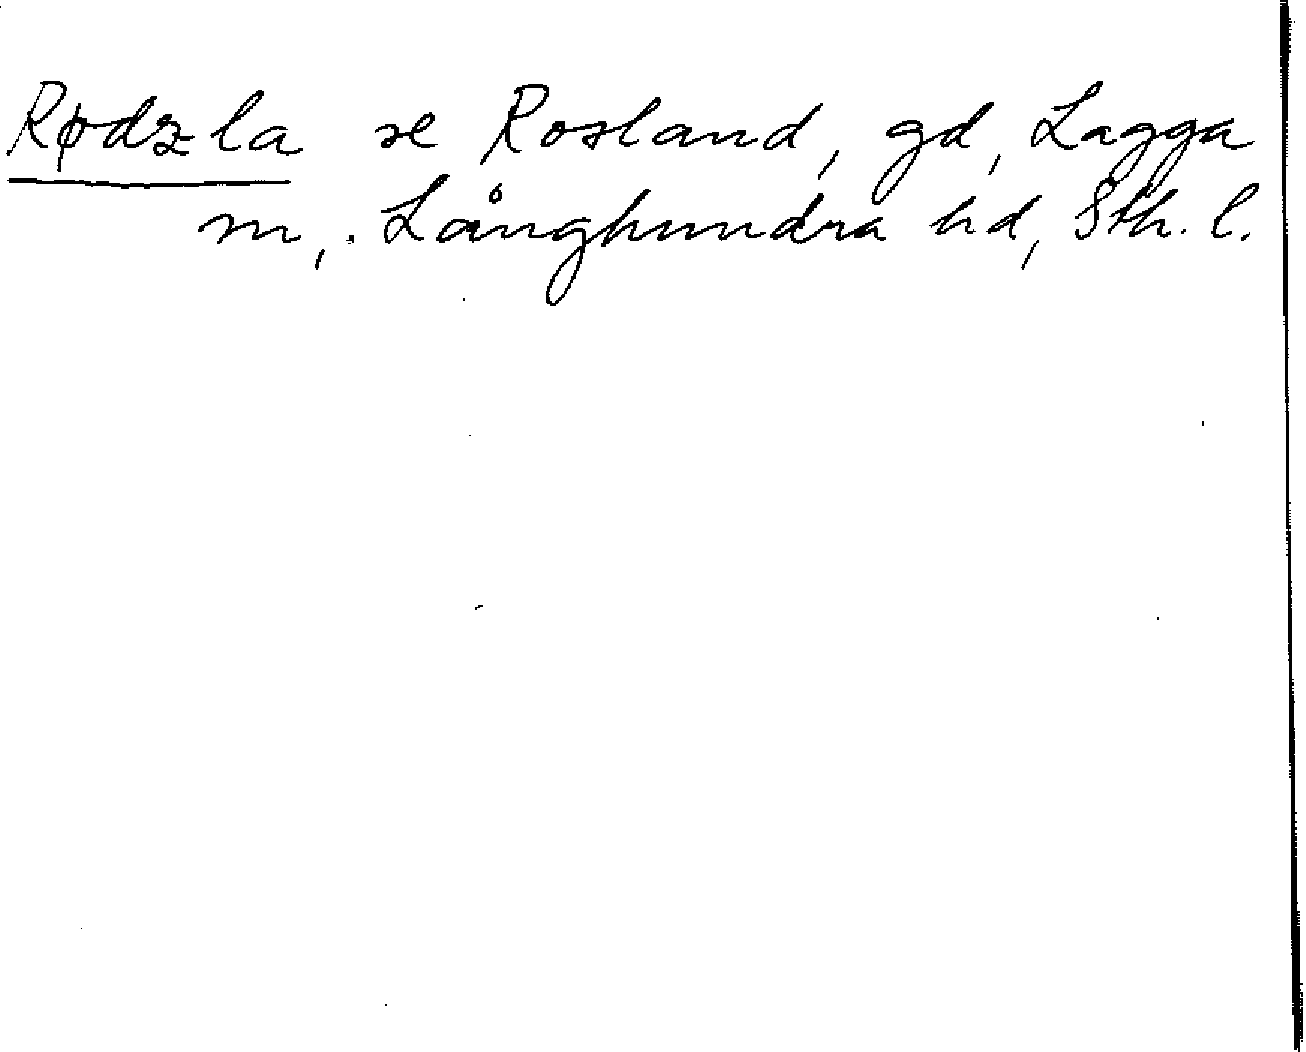 Rødzla se Rosland, gd, Lagga
sn, Långhundra hd, Sth. l.